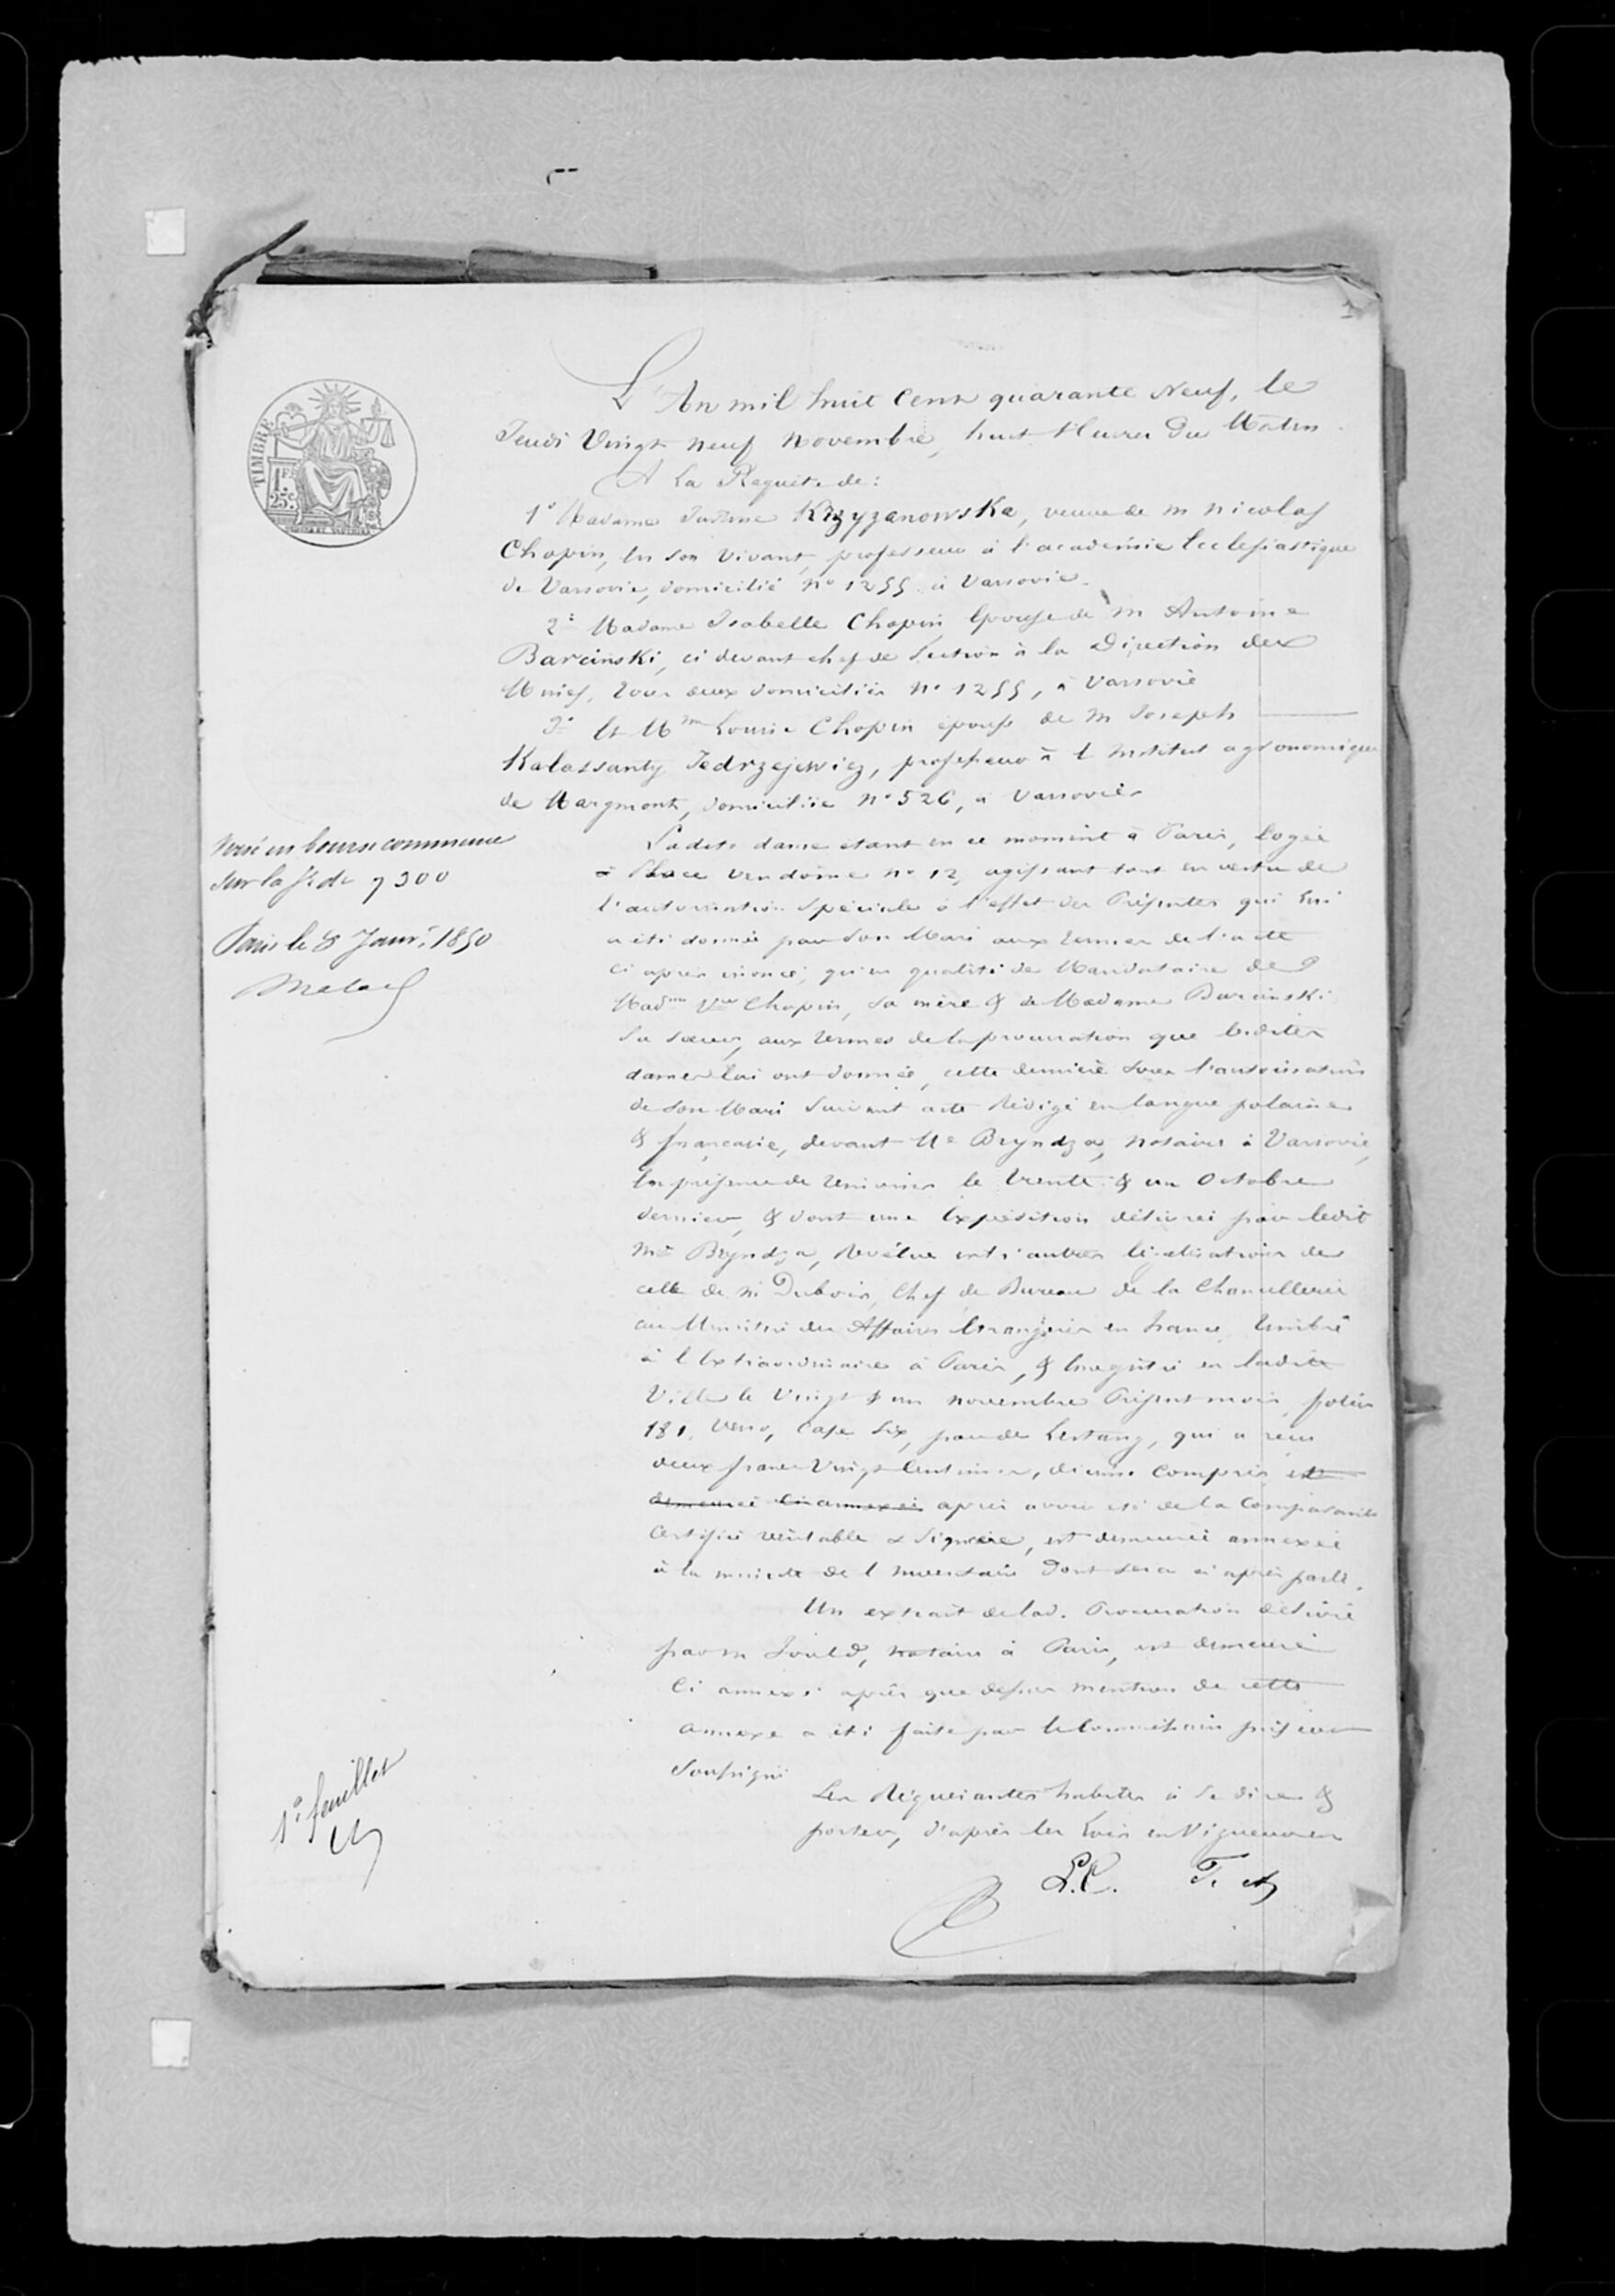 L'An mil huit Cent quarante Neuf, le
Jeudi Vingt neuf Novembre, huit Heures du Matin
A La Requête de:
1° Madame Justine Krzyzanowska, veuve de m nicolas
Chopin, en son vivant, professeur à l'académie Ecclésiastique
de Varsovie, domicilié n° 1255 à Varsovie.
2° Madame Isabelle Chopin épouse de m Antoine
Barcinski, ci devant chef de Section à la Direction des
Mines, tous deux domiciliés n° 1255, à Varsovie
3° Et Mme Louise Chopin épouse de m Joseph
Kalassanty Jedrzejewicz, professeur à l'Institut agronomique
de Marymont, domiciliée n° 526, à Varsovie
Ladite dame étant en ce moment à Paris, logée
Place Vendôme n° 12, agissant tant en vertu de
l'autorisation Spéciale à l'effet des Présentes qui lui
a été donnée par son Mari aux termes de l'acte
ci après énoncé, qu'en qualité de Mandataire de
Madme Vve Chopin, sa mère & de Madame Barcinski
sa sœur, aux termes de la procuration que lesdites
dames lui ont donnée, cette dernière sous l'autorisation
de son Mari suivant acte rédigé en langue polonaise
& française, devant Me Bryndza, notaire à Varsovie,
en présence de témoins le trente & un Octobre
dernier, & dont une Expédition délivrée par ledit
Me Bryndza, revêtue entr'autres légalisations de
celle de m Dubois, Chef de Bureau de la Chancellerie
au Ministère des Affaires Etrangères en france, timbré
à l'Extraordinaire à Paris, & Enregistré en ladite
Ville le Vingt & un novembre Présent mois, folio
181, Verso, Case Six, par de Lestang, qui a reçu
deux francs Vingt Centimes, dixième compris est
demeurée ci annexée après avoir été de la Comparante
Certifiée véritable & signée, est demeurée annexée
à la minute de l'Inventaire dont sera ci après parlé.
Un extrait de lad. Procuration délivré
par m Fould, notaire à Paris, est demeuré
ci annexé après que dessus mention de cette
annexe a été faite par le Commissaire priseur
soussigné
Les Requérantes habiles à se dire &
porter, d'après les Lois en Vigueur en
L.C. F. 
Versé en bourse commune
sur la Se de 7300
Paris le 8 Janv. 1850
1er feuillet
TIMBRE
1F.
25c.